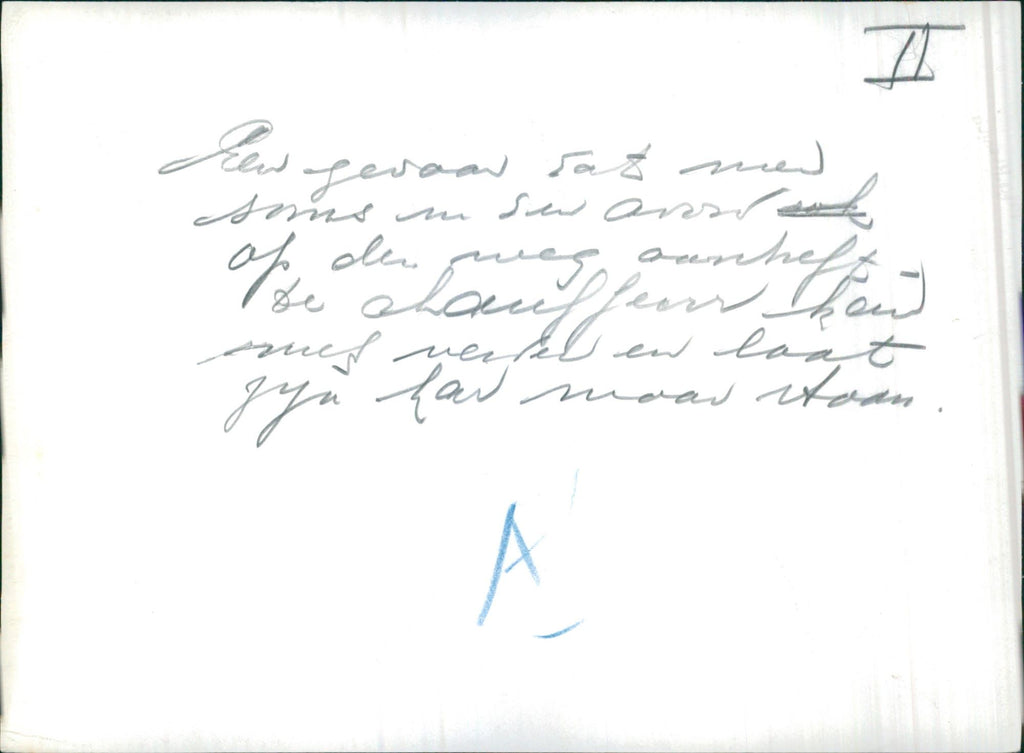 II
Een gevaar dat men
soms in den avond
op den weg aantreft
de chauffeur kan
niet verder en laat
zijn kar maar staan.
A